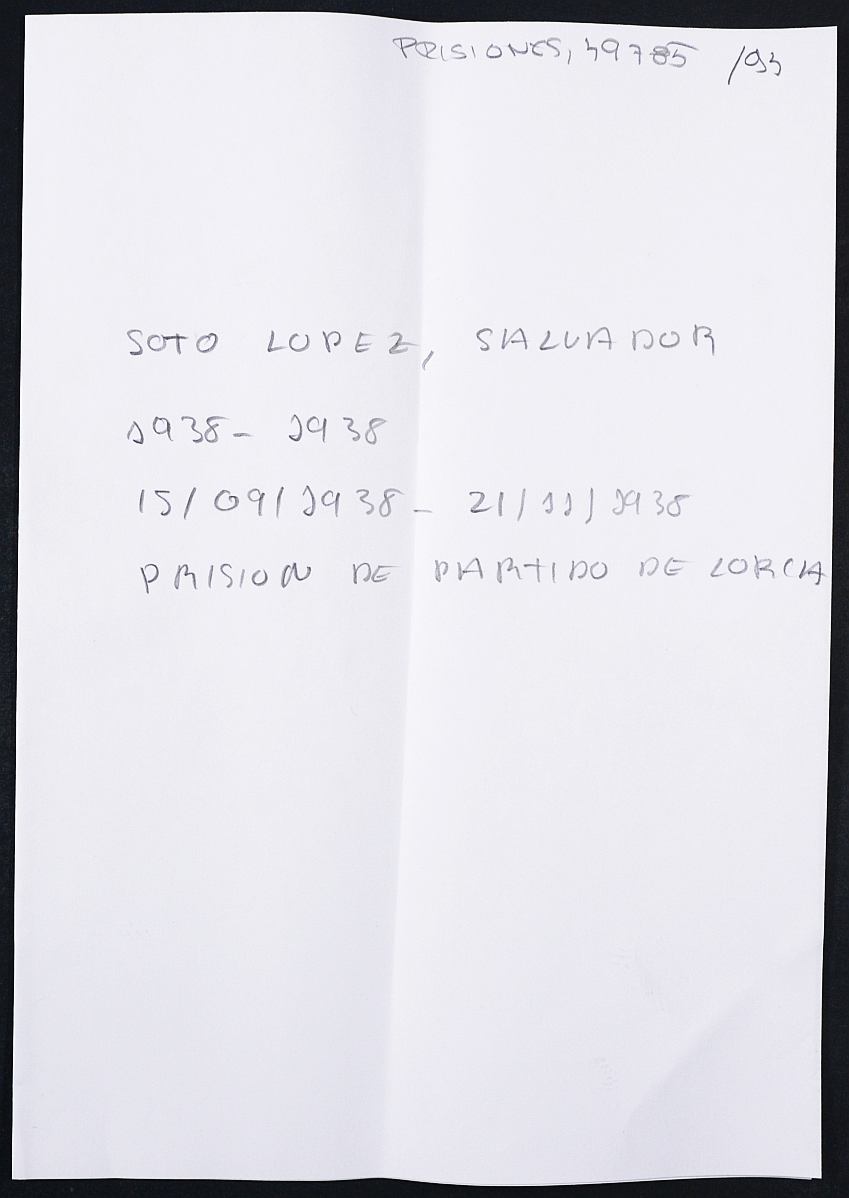 PRISIONES, 39785 /93
SOTO LOPEZ, SALVADOR
1938- 1938
15/09/1938- 21/11/1938
PRISION DE PARTIDO DE LORCA